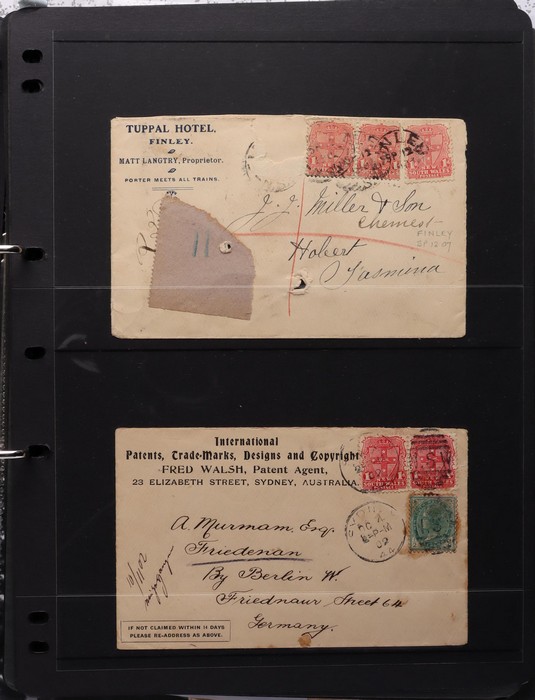 TUPPAL HOTEL,
FINLEY.
MATT LANGTRY, Proprietor.
PORTER MEETS ALL TRAINS.
FINLEY
SOUTH WALES
11
J. J. Miller & Son
Chemest
FINLEY
SP 12 07
Hobert
Tasmina
International
Patents, Trade-Marks, Designs and Copyright
FRED WALSH, Patent Agent,
23 ELIZABETH STREET, SYDNEY, AUSTRALIA.
SOUTH WALES
A. Murmam. Esq.
Friedenan
By Berlin W.
Friednaur Street 64
Germany.
IF NOT CLAIMED WITHIN 11 DAYS
PLEASE RE-ADDRESS AS ABOVE.